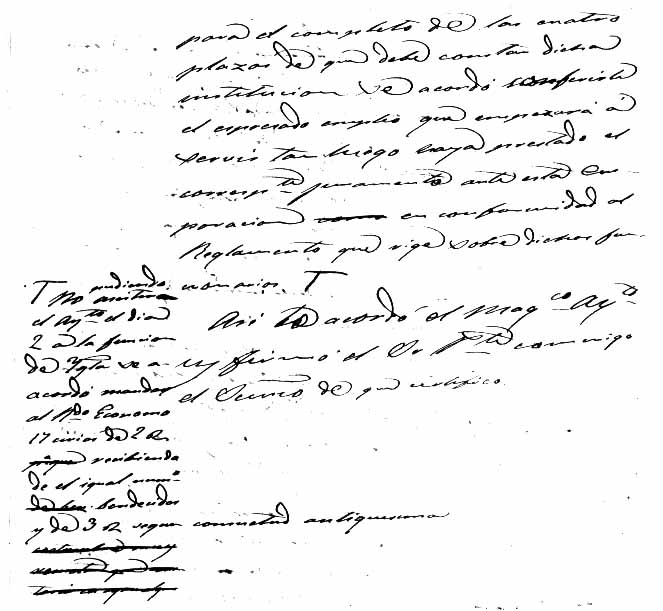 para el completo de las cuatro
plazas de que debe constar dicha
institucion se acordó conferirle
el espresado empleo que empezará á
servir tan luego haya prestado el
corresp.te juramento ante esta Cor-
poracion en conformidad al
Reglamento que rige sobre dichos fun-
cionarios. T
Asi lo acordó el Mag.co Ay.to
y firmó el Sr P.te conmigo
el Secrio de que certifico.
T No pudiendo
asistir
el Ay.to el dia
2 á la funcion
de Ygla se
acordó mandar
al Rdo Economo
17 cirios de 2 R
recibiendo
de el igual num.o
bendecidos
y de 3 R segun consuetud antiquesima